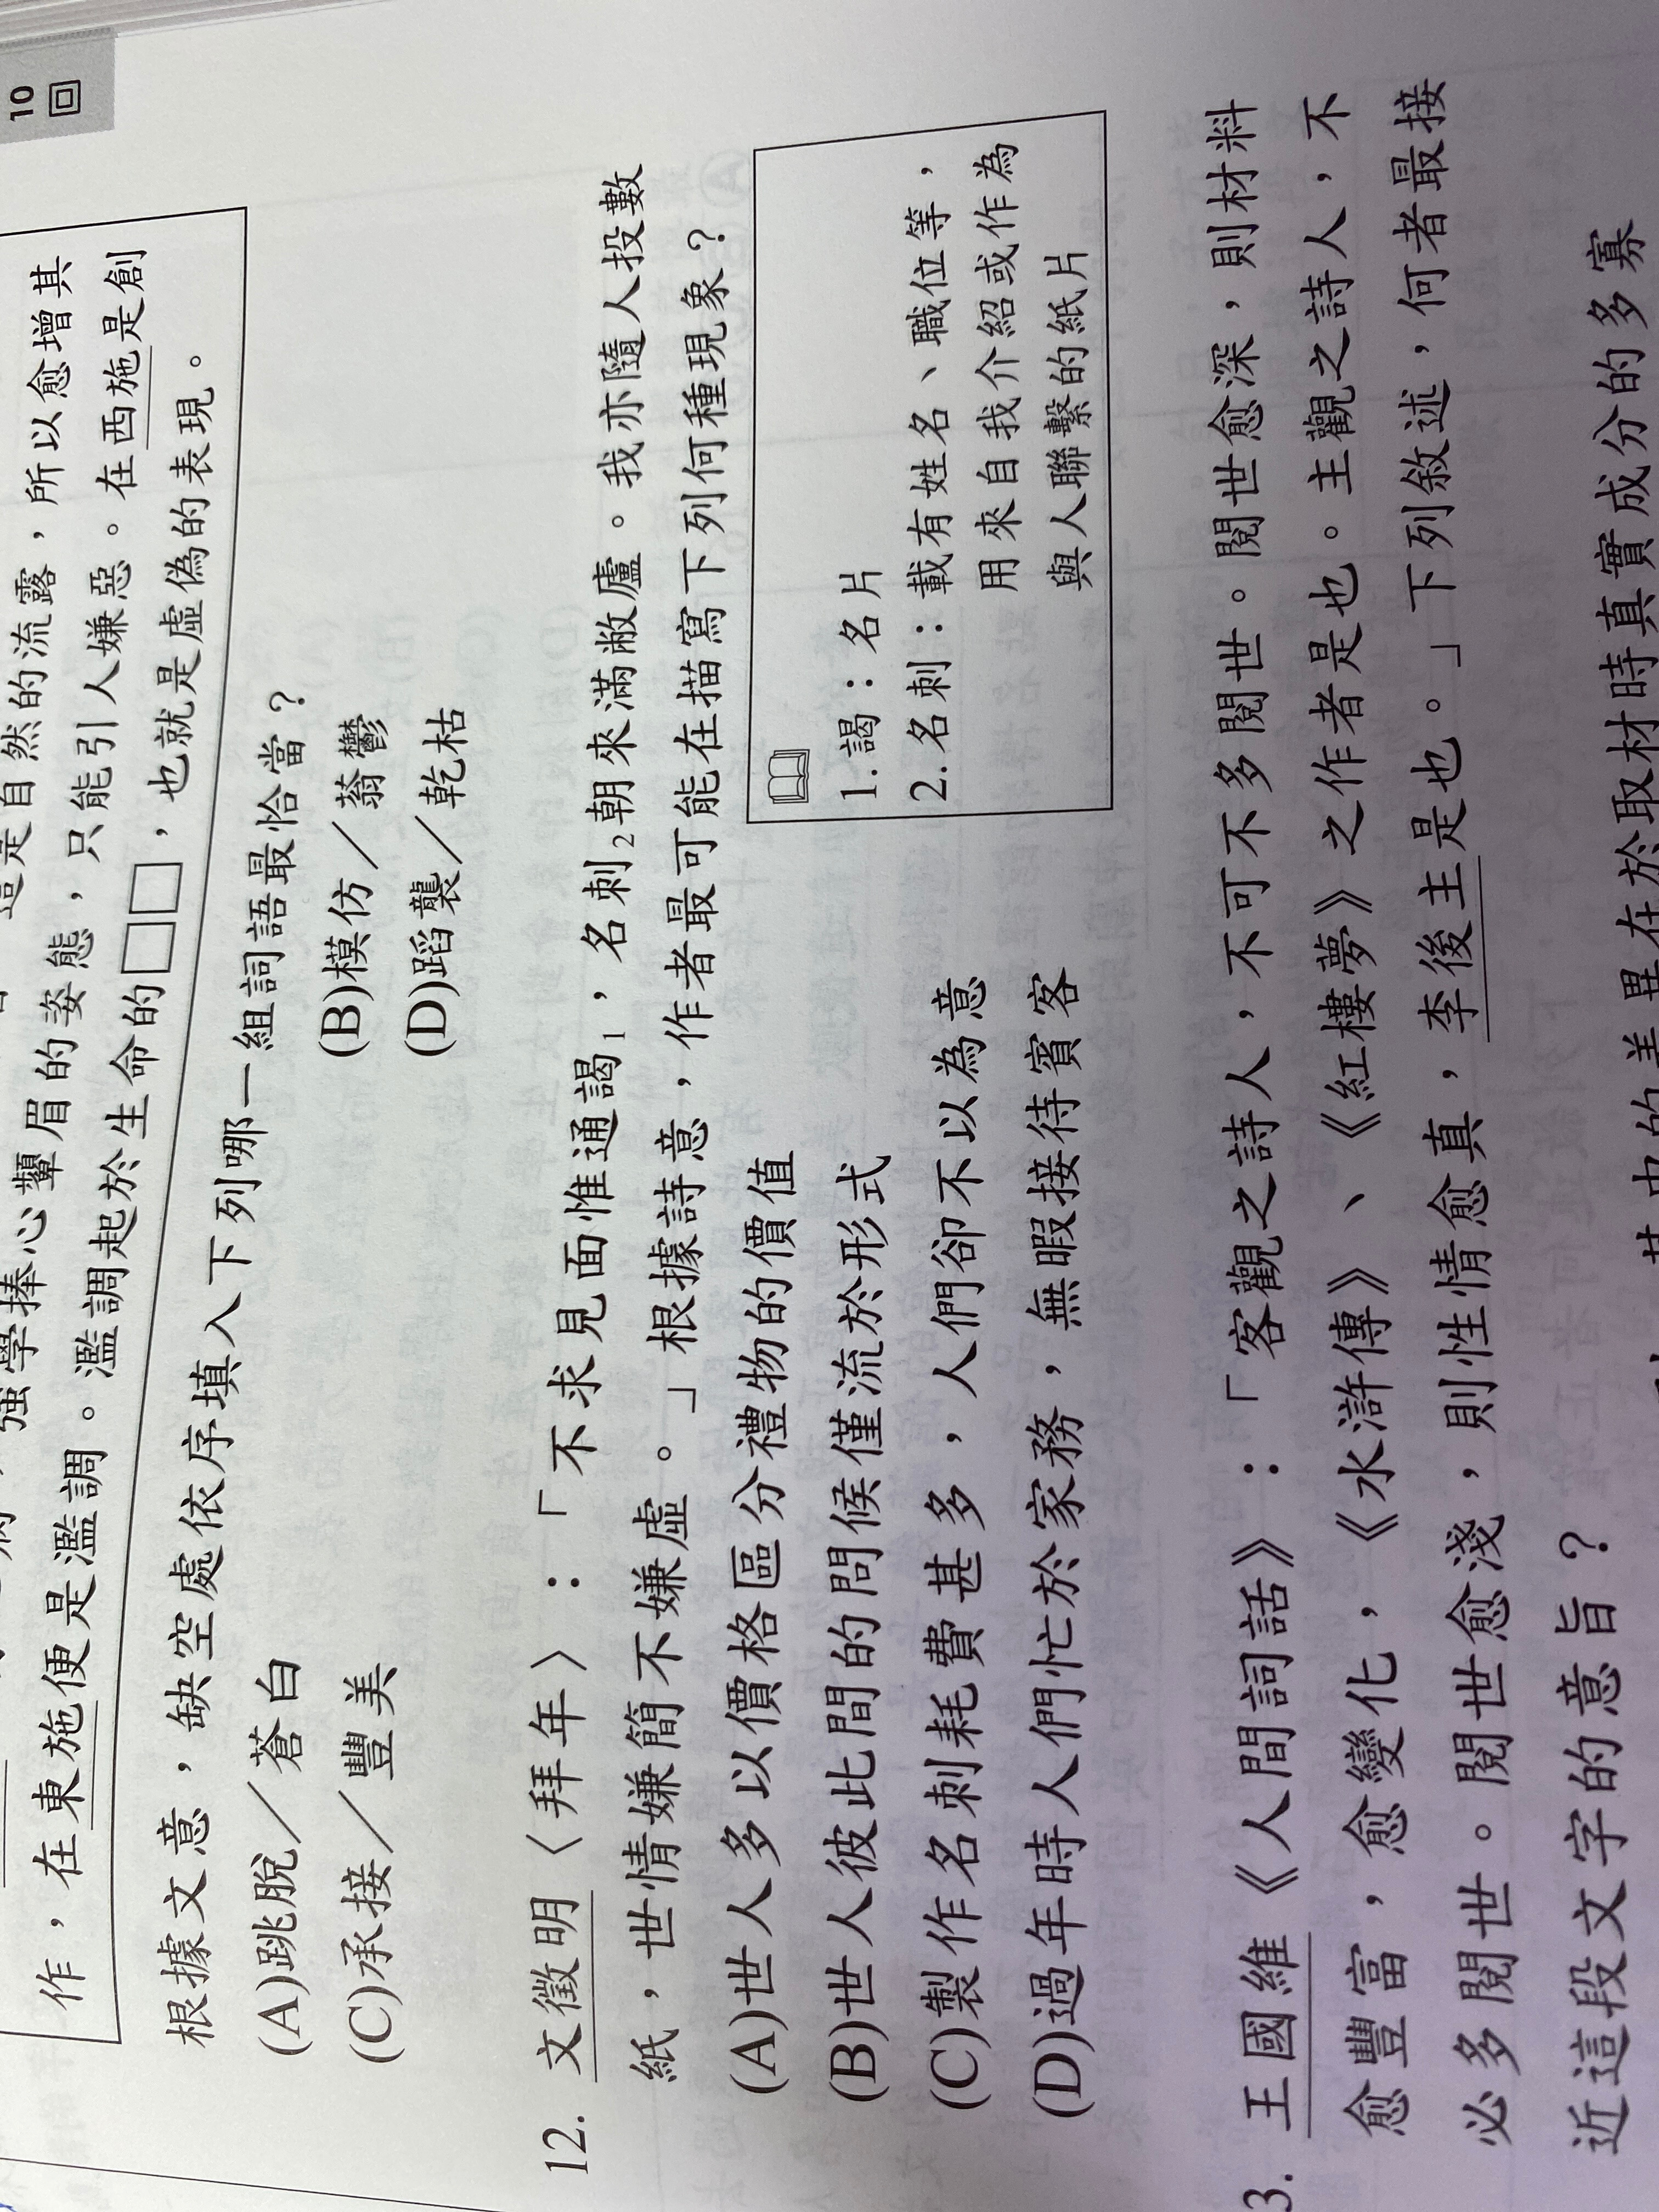 10
回
然的流露，所以愈增其
強學捧心顰眉的姿態，只能引人嫌惡。在西施是創
作，在東施便是濫調。濫調起於生命的□□，也就是虛偽的表現。
根據文意，缺空處依序填入下列哪一組詞語最恰當？
(A)跳脫／蒼白
(B)模仿／蓊鬱
(C)承接／豐美
(D)蹈襲／乾枯
12. 文徵明〈拜年〉：「不求見面惟通謁1，名刺2朝來滿敝廬。我亦隨人投數
紙，世情嫌簡不嫌虛。」根據詩意，作者最可能在描寫下列何種現象？
(A)世人多以價格區分禮物的價值
(B)世人彼此間的問候僅流於形式
(C)製作名刺耗費甚多，人們卻不以為意
(D)過年時人們忙於家務，無暇接待賓客
1.謁：名片
2.名刺：載有姓名、職位等，
用來自我介紹或作為
與人聯繫的紙片
3. 王國維《人間詞話》：「客觀之詩人，不可不多閱世。閱世愈深，則材料
愈豐富，愈變化，《水滸傳》、《紅樓夢》之作者是也。主觀之詩人，不
必多閱世。閱世愈淺，則性情愈真，李後主是也。」下列敘述，何者最接
近這段文字的意旨？
其中的差異在於取材時真實成分的多寡